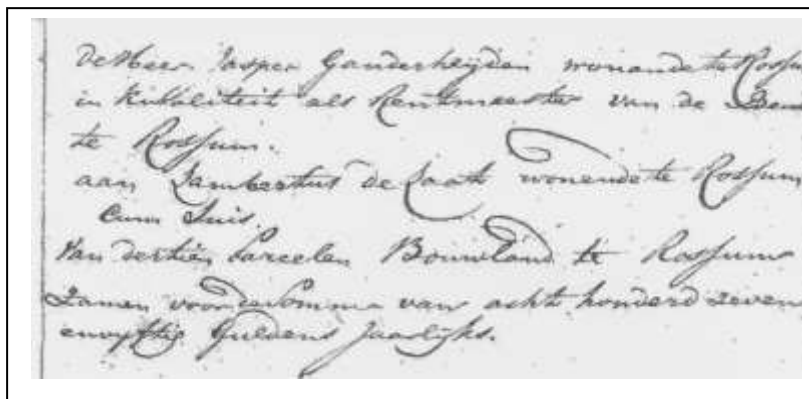 de Heer Jasper Ganderheijden wonende te Rossu
in Kwaliteit als Rentmeester van de
te Rossum.
aan Lambertus de Raath wonende te Rossum
Cum Suis.
Van dertien Parcelen Bouwland te Rossum
Zamen voor de Somma van acht honderd zeven
envyftig Guldens Jaarlijks.